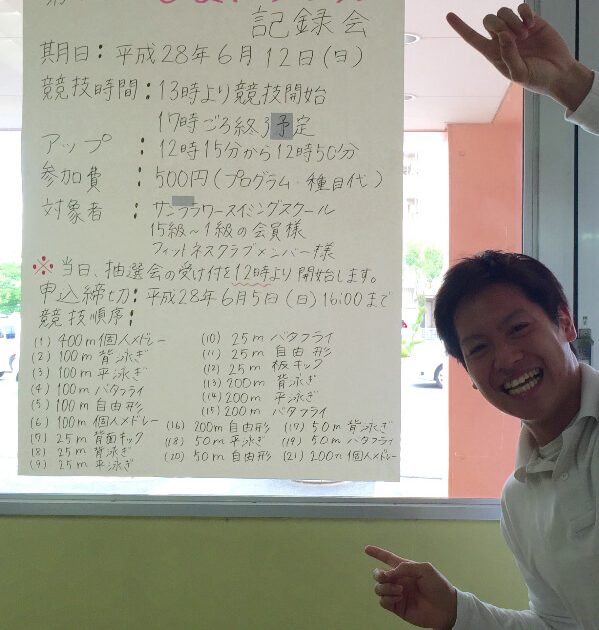 記録会
期日：平成28年6月12日(日)
競技時間：13時より競技開始
17時ごろ終了予定
アップ：12時15分から12時50分
参加費：500円(プログラム・種目代)
対象者：サンフラワースイミングスクール
15級～1級の会員様
フィットネスクラブメンバー様
※当日、抽選会の受け付を12時より開始します。
申込締切：平成28年6月5日(日)16:00まで
競技順序：
(1) 400m個人メドレー
(2) 100m 背泳ぎ
(3) 100m 平泳ぎ
(4) 100m バタフライ
(5) 100m 自由形
(6) 100m 個人メドレー
(7) 25m 背面キック
(8) 25m 背泳ぎ
(9) 25m 平泳ぎ
(10) 25m バタフライ
(11) 25m 自由形
(12) 25m 板キック
(13) 200m 背泳ぎ
(14) 200m 平泳ぎ
(15) 200m バタフライ
(16) 200m 自由形 (17) 50m 背泳ぎ
(18) 50m 平泳ぎ (19) 50m バタフライ
(20) 50m 自由形 (21) 200m 個人メドレー